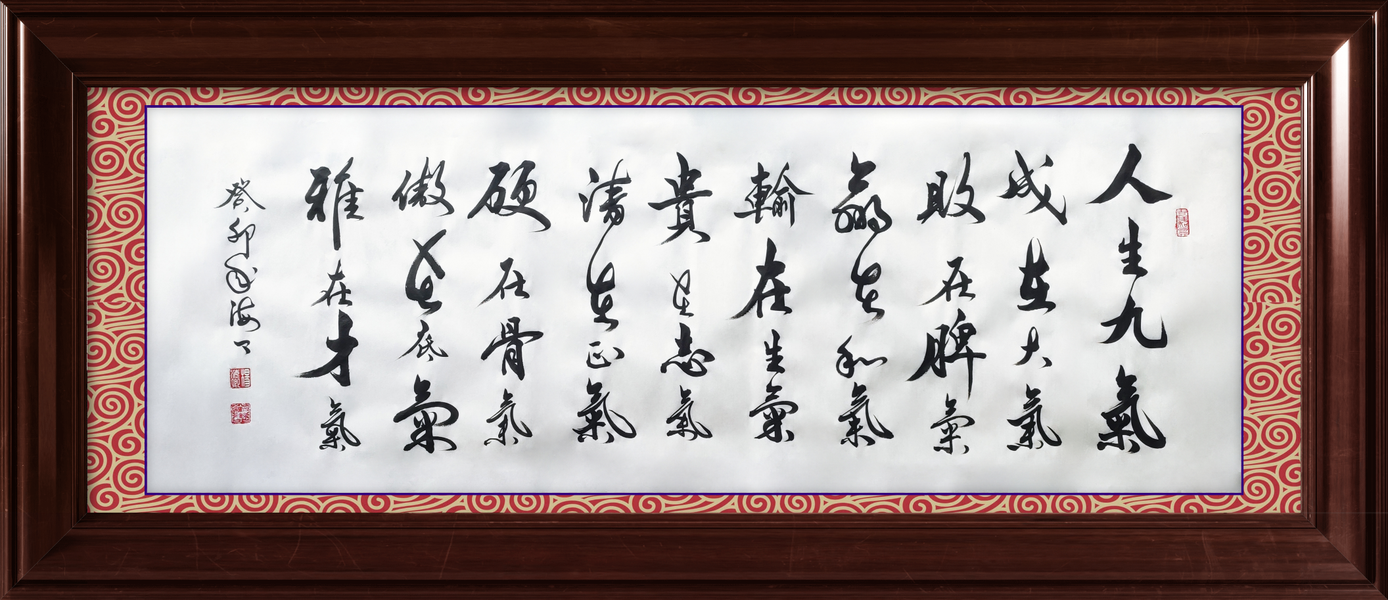 人生九氣
成在大氣
敗在脾氣
贏在和氣
輸在生氣
貴在志氣
清在正氣
硬在骨氣
傲在底氣
雅在才氣
癸卯年海